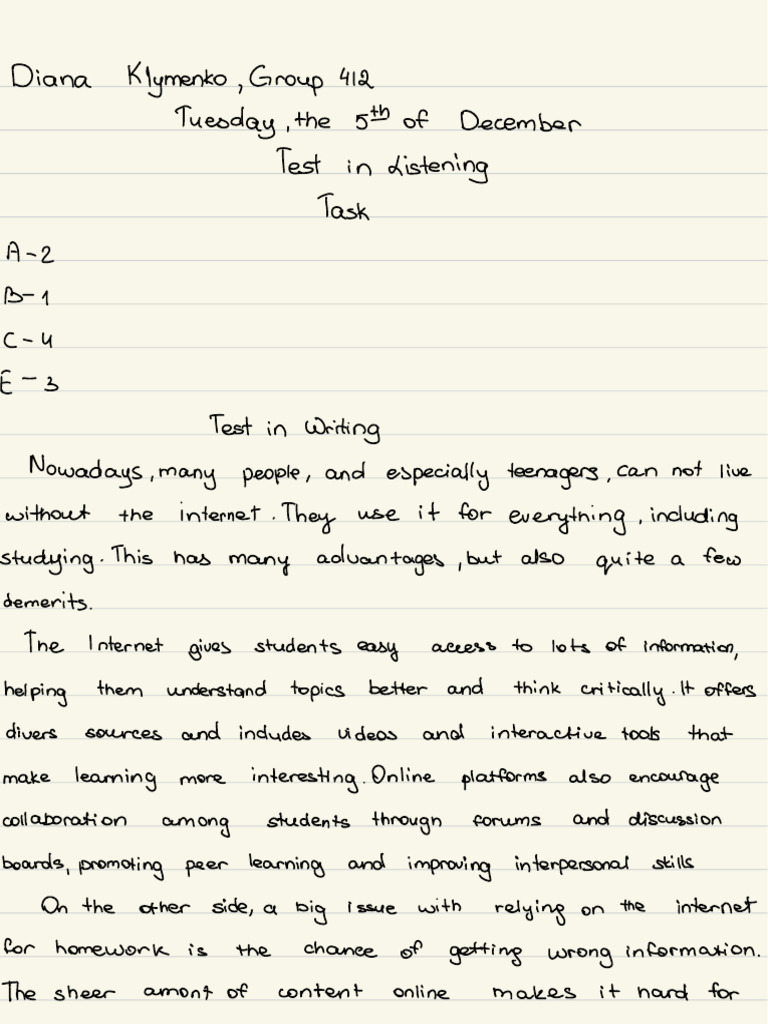 Diana Klymenko, Group 412
Tuesday, the 5th of December
Test in Listening
Task
A-2
B-1
C-4
E-3
Test in Writing
Nowadays, many people, and especially teenagers, can not live
without the internet. They use it for everything, including
studying. This has many advantages, but also quite a few
demerits.
The Internet gives students easy access to lots of information,
helping them understand topics better and think critically. It offers
divers sources and includes videos and interactive tools that
make learning more interesting. Online platforms also encourage
collaboration among students through forums and discussion
boards, promoting peer learning and improving interpersonal skills
On the other side, a big issue with relying on the internet
for homework is the chance of getting wrong information.
The sheer amont of content online makes it hard for